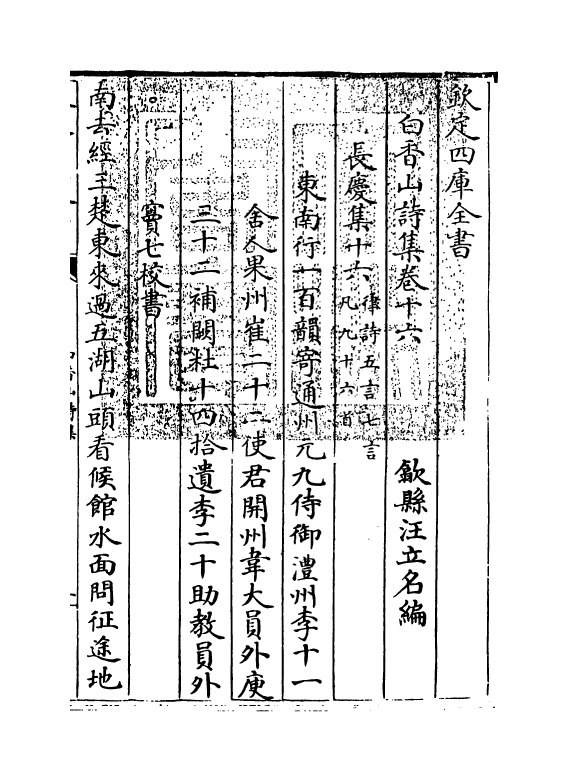 欽定四庫全書
白香山詩集卷十六
歙縣汪立名編
長慶集十六律詩五言七言
凡九十六首
東南行一百韻寄通州元九侍御澧州李十一
舍人果州崔二十二使君開州韋大員外庾
三十二補闕杜十四拾遺李二十助教員外
竇七校書
南去經三楚東來過五湖山頭看候館水面問征途地